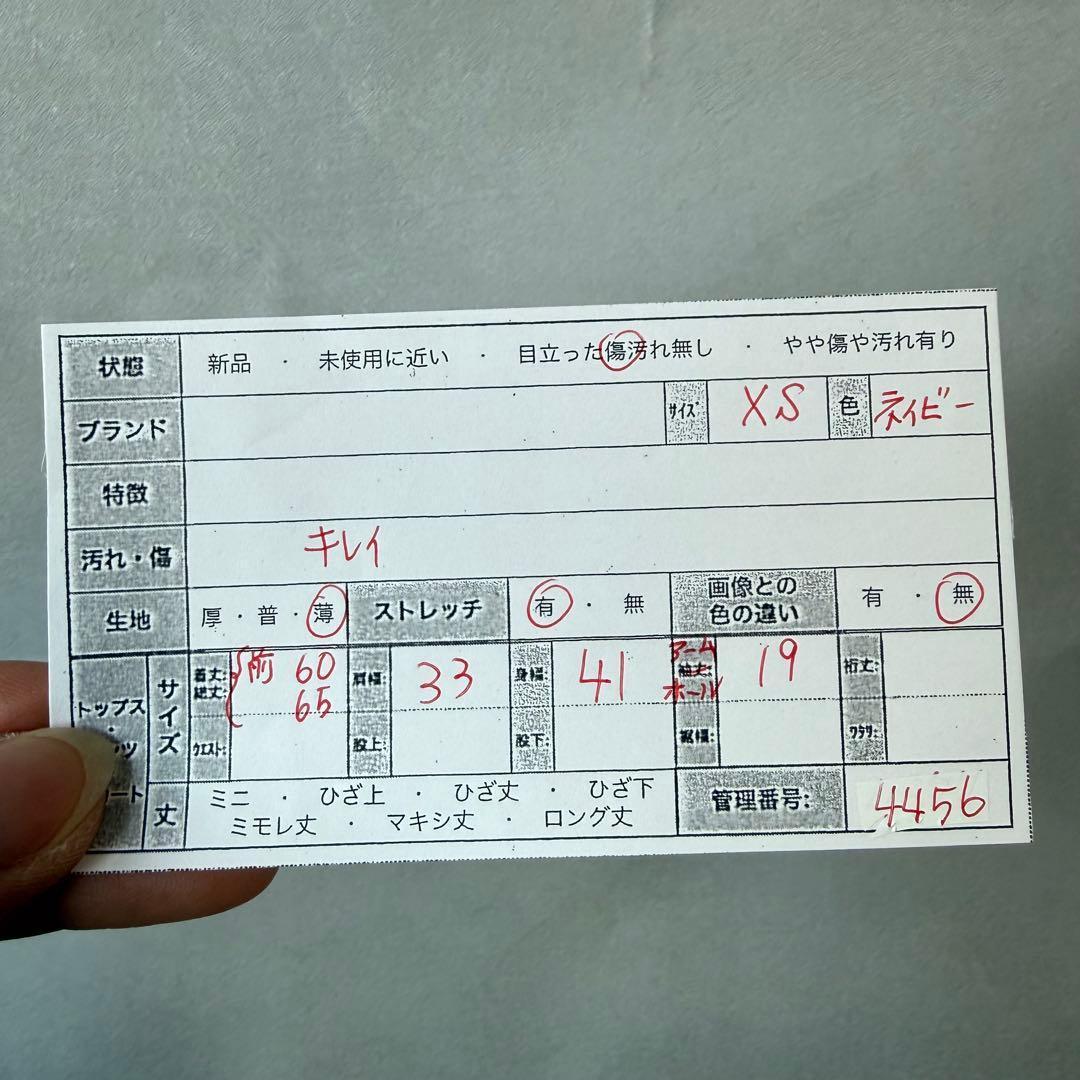 状態 新品 ・ 未使用に近い ・ 目立った傷汚れ無し ・ やや傷や汚れ有り
ブランド サイズ XS 色 ネイビー
特徴
汚れ・傷 キレイ
生地 厚・普・薄 ストレッチ 有 ・ 無 画像との色の違い 有 ・ 無
トップス サイズ 着丈: 総丈: 前 60 65 肩幅: 33 身幅: 41 アームホール 袖丈: 19 裄丈:
ウエスト: 股上: 股下: 裾幅: ワタリ:
丈 ミニ ・ ひざ上 ・ ひざ丈 ・ ひざ下
ミモレ丈 ・ マキシ丈 ・ ロング丈
管理番号: 4456